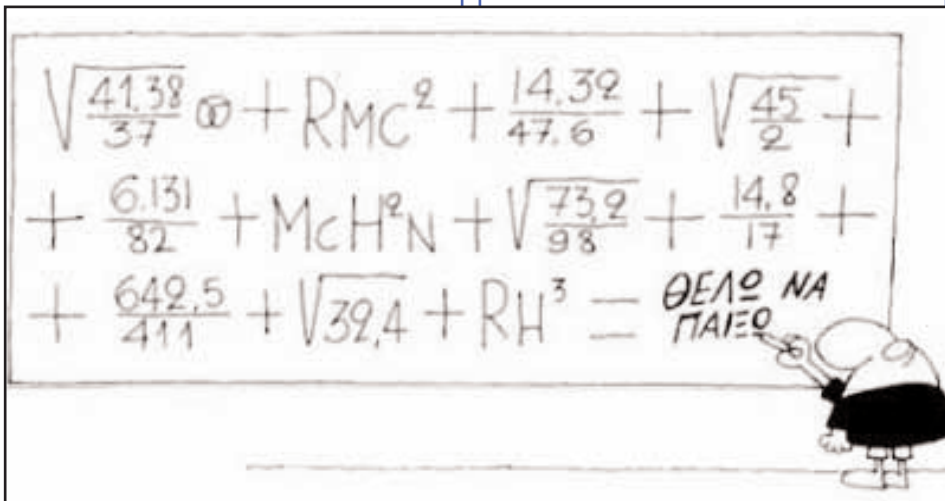 √41.38/37 ∞ + RMC² + 14.32/47.6 + √45/2 +
+ 6.131/82 + McH²N + √73,2/98 + 14,8/17 +
+ 642,5/411 + √32,4 + RH³ = ΘΕΛΩ ΝΑ
ΠΑΙΞΩ